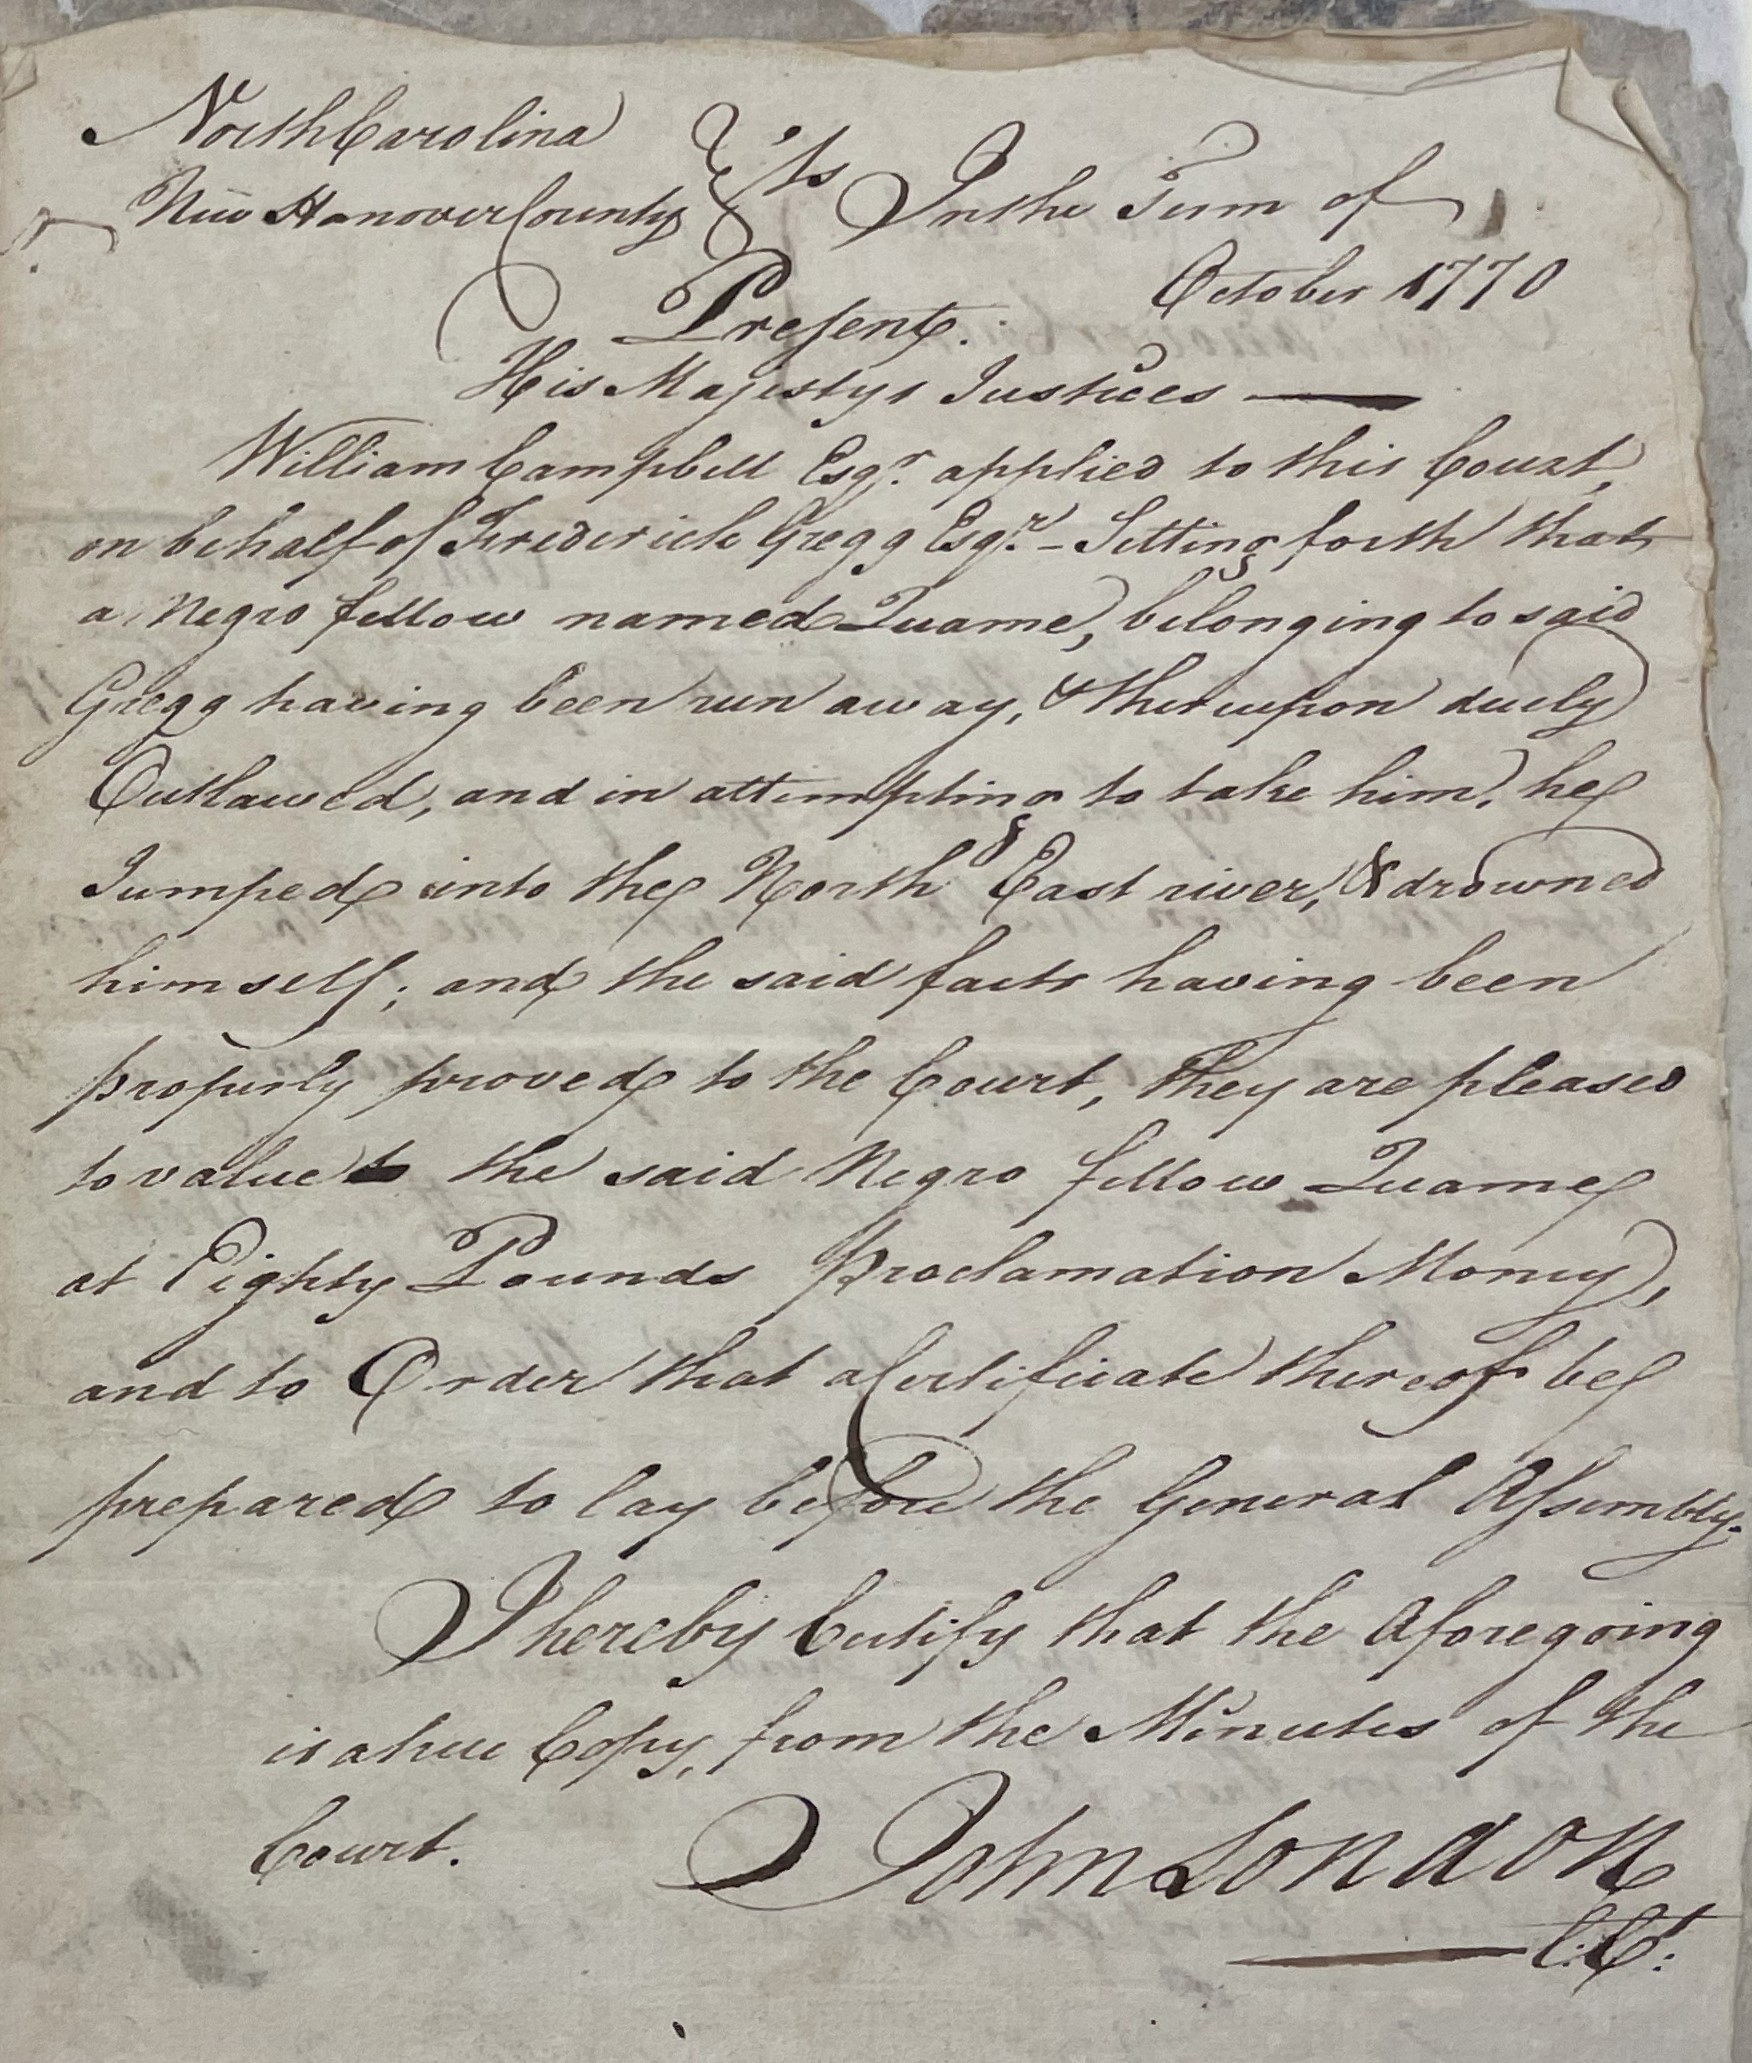 North Carolina
New Hanover County } ss In the Term of
October 1770
Present.
His Majestys Justices —
William Campbell Esqr. applied to this Court,
on behalf of Frederick Gregg Esqr. – Setting forth that
a Negro fellow named Quame, belonging to said
Gregg having been run away, & thereupon duely
Outlawed, and in attempting to take him, he
Jumped into the North East river, & drowned
himself; and the said facts having been
properly proved to the Court, They are pleased
to value the said Negro fellow Quame
at Eighty Pounds Proclamation Money,
and to Order that a Certificate thereof be
prepared to lay before the General Assembly.
I hereby Certify that the Aforegoing
is a true Copy, from the Minutes of the
Court. John London
— C:Ct: